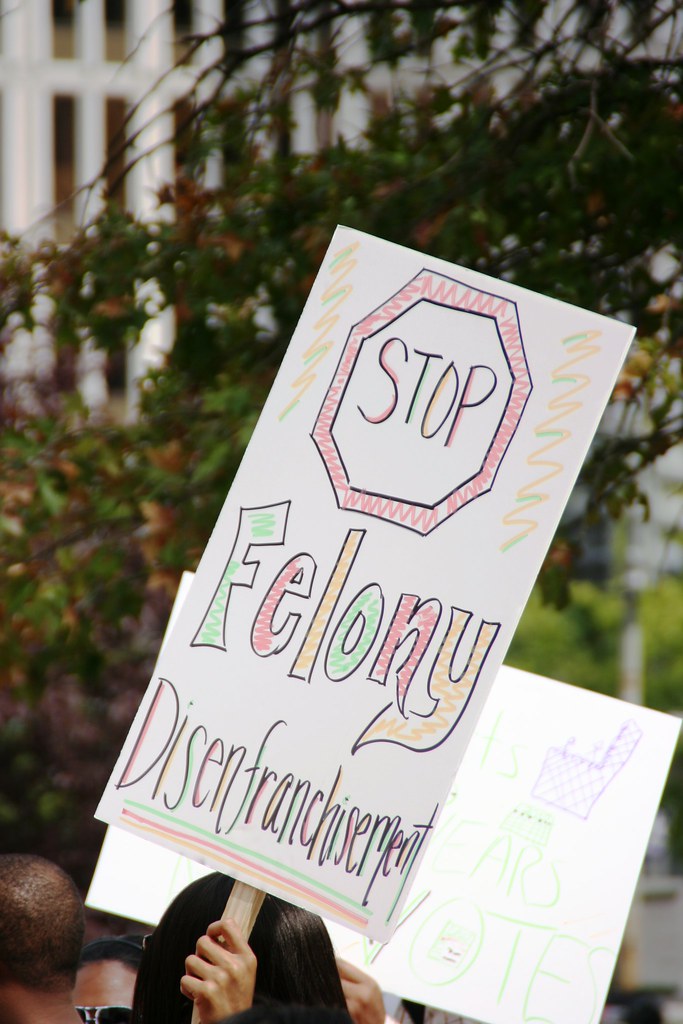 STOP
Felony
Disenfranchisement
ts
YEARS
VOTES